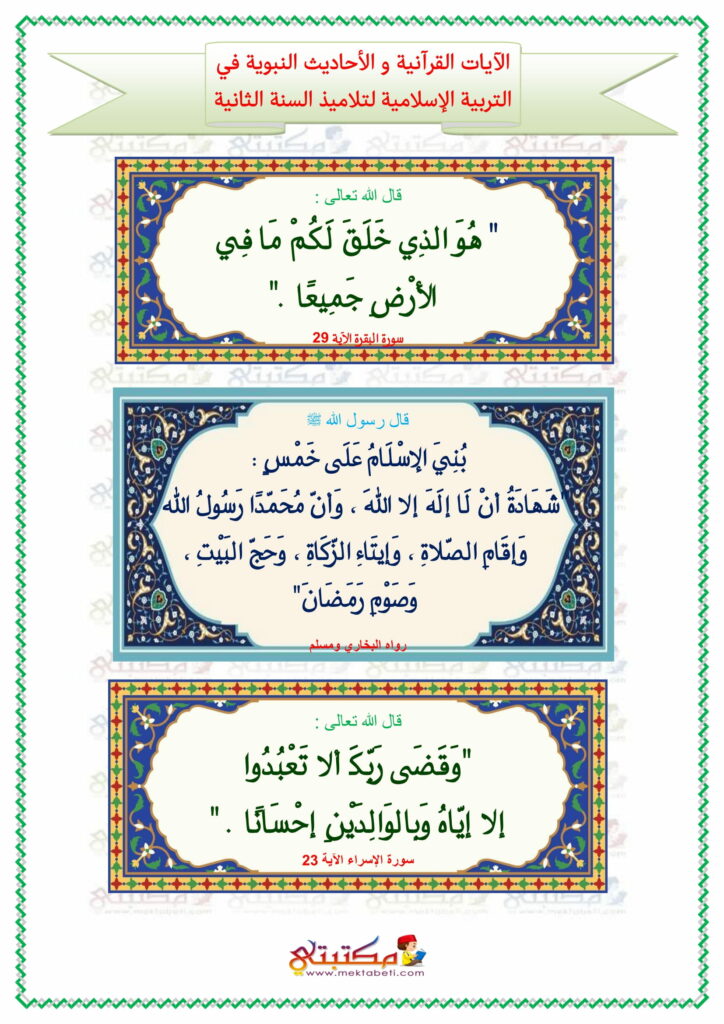 الآيات القرآنية و الأحاديث النبوية في
التربية الإسلامية لتلاميذ السنة الثانية
قال الله تعالى :
" هُوَ الذِي خَلَقَ لَكُمْ مَا فِي
الأَرْضِ جَمِيعًا ."
سورة البقرة الآية 29
قال رسول الله ﷺ
بُنِيَ الإِسْلَامُ عَلَى خَمْسٍ :
"شَهَادَةُ أنْ لَا إلَهَ إلا اللهَ ، وَأنّ مُحَمّدًا رَسُولُ الله
وَإقَامِ الصّلاةِ ، وَإيتَاءِ الزّكَاةِ ، وَحَجّ البَيْتِ ،
وَصَوْمِ رَمَضَانَ"
رواه البخاري ومسلم
قال الله تعالى :
"وَقَضَى رَبّكَ ألا تَعْبُدُوا
إلا إيّاهُ وَبِالوَالِدَيْنِ إحْسَانًا . "
سورة الإسراء الآية 23
مكتبتي
www.mektabeti.com